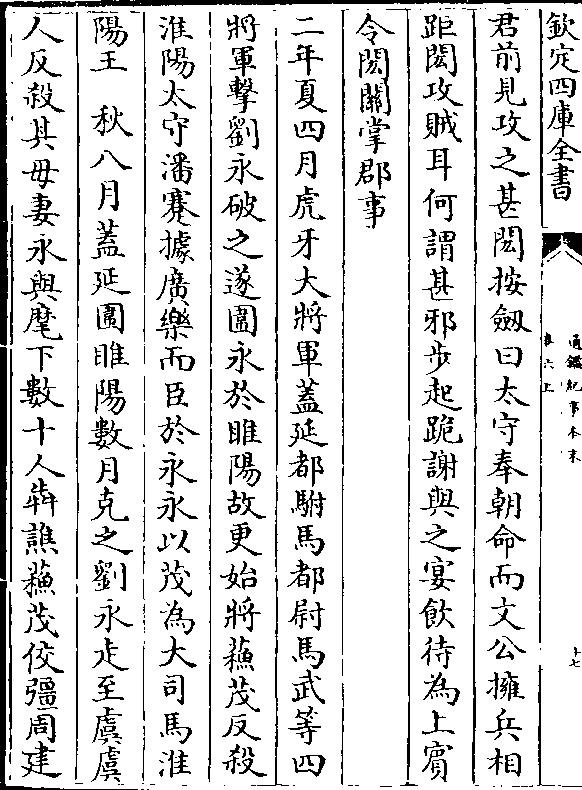 欽定四庫全書
通鑑紀事本末
卷六上
十七
君前見攻之甚閎按劔曰太守奉朝命而文公擁兵相
距閎攻賊耳何謂甚邪步起跪謝與之宴飲待為上賓
令閎關掌郡事
二年夏四月虎牙大將軍蓋延都駙馬都尉馬武等四
將軍擊劉永破之遂圍永於睢陽故更始將蘓茂反殺
淮陽太守潘蹇據廣樂而臣於永永以茂為大司馬淮
陽王　秋八月蓋延圍睢陽數月克之劉永走至虞虞
人反殺其母妻永與麾下數十人犇譙蘓茂佼彊周建